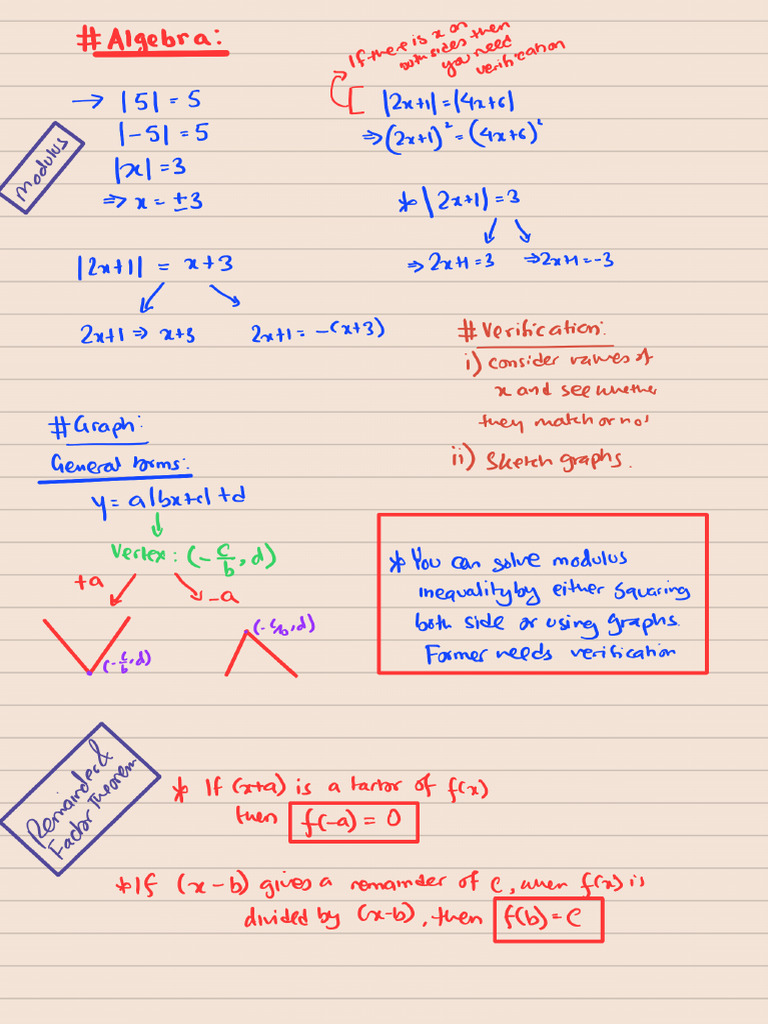 # Algebra:
If there is x on
both sides then
you need
verification
Modulus
→ |5| = 5
|-5| = 5
|x| = 3
⇒ x = ±3
|2x+1| = |4x+6|
⇒ (2x+1)² = (4x+6)²
* |2x+1| = 3
⇒ 2x+1 = 3 ⇒ 2x+1 = -3
|2x+1| = x+3
2x+1 ⇒ x+3 2x+1 = -(x+3)
# Verification:
i) consider values of
x and see whether
they match or not
ii) Sketch graphs.
# Graph:
General forms:
y = a|bx+c| + d
Vertex: (-c/b, d)
+a -a
(-c/b, d)
(-c/b, d)
* You can solve modulus
inequality by either squaring
both side or using graphs.
Former needs verification
Remainder &
Factor Theorem
* If (x+a) is a factor of f(x)
then f(-a) = 0
* If (x-b) gives a remainder of c, when f(x) is
divided by (x-b), then f(b) = c